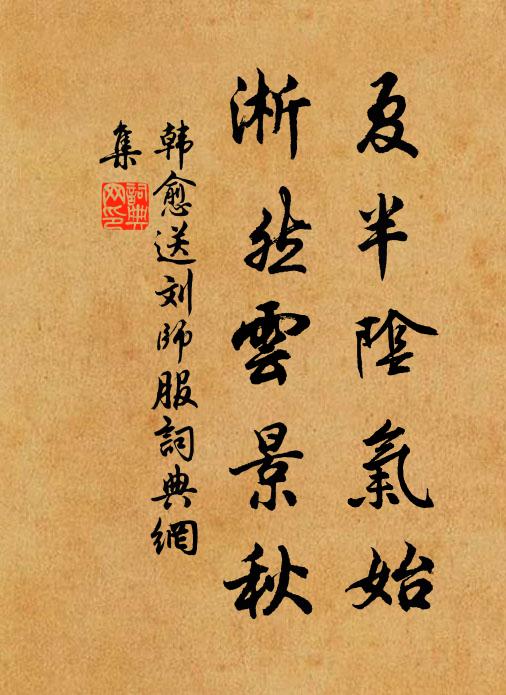 夏半陰氣始
淅然雲景秋
韩愈送刘師服詞典網
集
詞典
网印